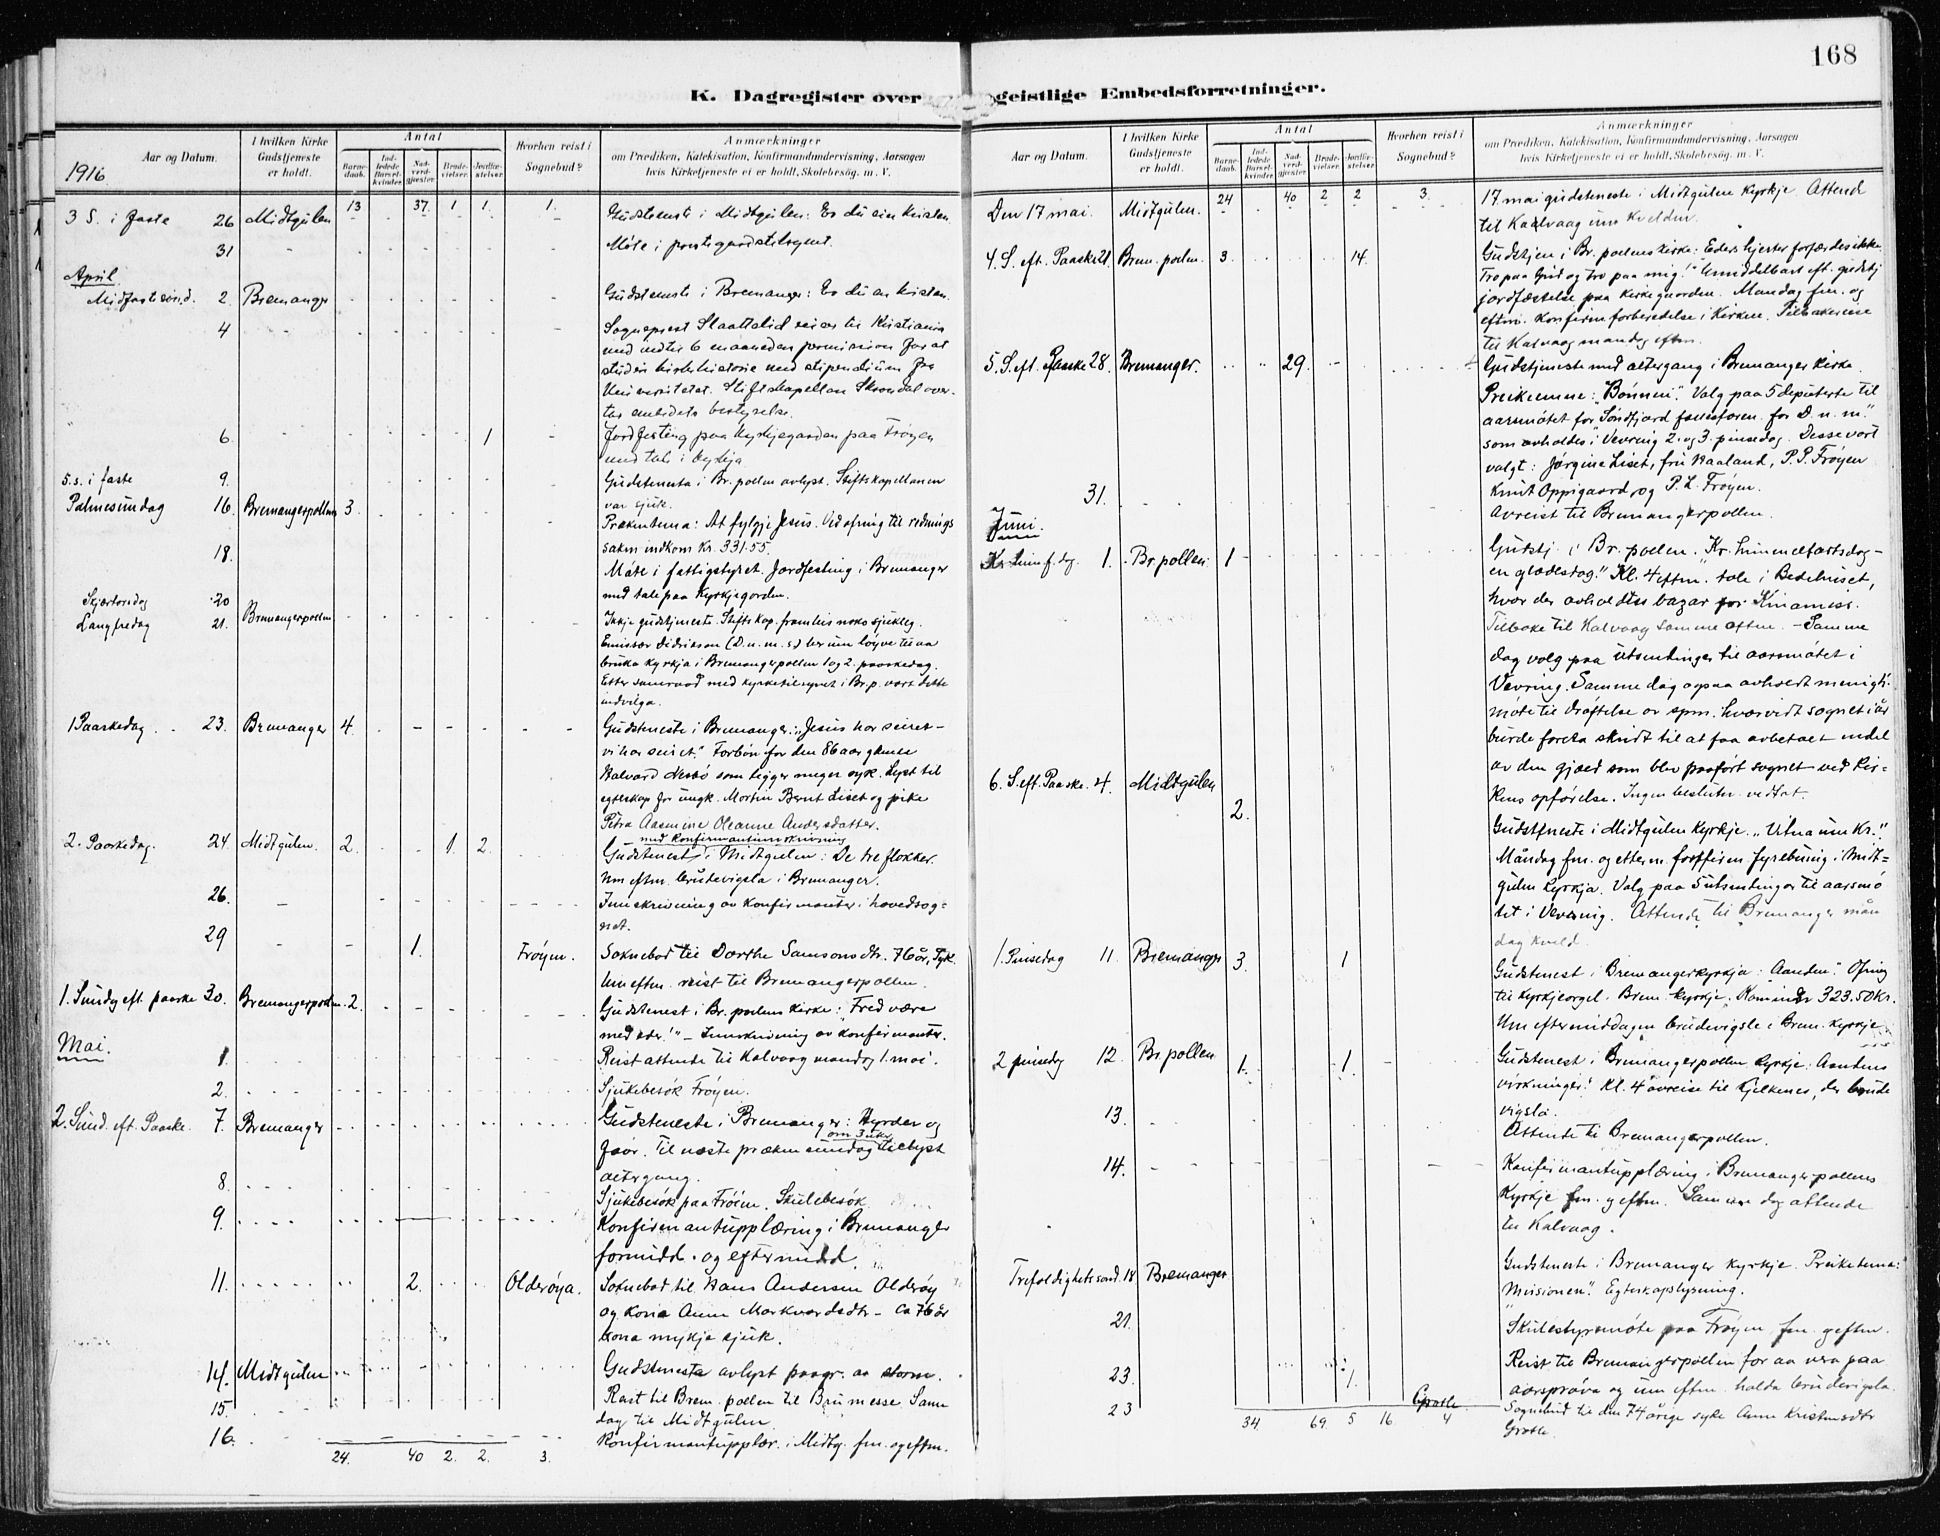 168
K. Dagregister over geistlige Embedsforretninger.
Aar og Datum.
I hvilken Kirke Gudstjeneste er holdt.
Antal
Barnedaab.
Indledede Barselkvinder.
Nadverdgjester.
Brudevielser.
Jordfæstelser.
Hvorhen reist i Sognebud?
Anmærkninger
om Prædiken, Katekisation, Konfirmandundervisning, Aarsagen
hvis Kirketjeneste ei er holdt, Skolebesøg. m. V.
1916
13 37 1 1 1
3 S. i faste 26 Midtgulen Gudsteneste i Midtgulen: Er du ein kristen
31 Møte i prestegaardstilsynet.
April
Midfastesønd. 2. Bremanger Gudsteneste i Bremanger: Er du en kristen.
4 Sogneprest Slaattelid reiser til Kristiania
med indtil 6 maaneders permission for at
studere kirkehistorie med stipendium fra
Universitetet. Stiftskapellan Skrondal over-
tar embidets bestyrelse.
6. 1 Jordfesting paa Kyrkjegarden paa Frøyen
med tale i kyrkja
5. s. i faste 9. Gudstenesta i Br. pollen avlyst. Stiftskapellanen
var sjuk.
Palmesundag 16. Bremangerpollen 3. Præketema: At fylgje Jesus. Ved ofring til rednings
saken indkom Kr. 331.55.
18. Møte i fattigstyret. Jordfesting i Bremanger
med tale paa Kyrkjegorden.
Skjærtorsdag 20
Langfredag 21. Bremangerpollen Ikkje gudstjeneste. Stiftskap. framleis noko sjukleg.
Emissær Didrikson (D. n. m. s.) ber um løyve til aa
bruka Kyrkja i Bremangerpollen 1 og 2. paaskedag.
Etter samraad med kyrketilsynet i Br. p. vart dette
indvilga.
1 Paaskedag. 23. Bremanger 4. Gudsteneste i Bremanger: "Jesus har seiret -
vi har seiret". Forbøn for den 86 aar gamle
Halvard Nesbø som ligger meget syk. Lyst til
egteskap for ungk. Mortin Bernt Liset og pike
Petra Aasmine Oleanne Andersdatter.
med konfirmantinnskrivning
2. Paaskedag. 24. Midtgulen. 2. 1. 2. Gudstenest i Midtgulen: De tre flokker.
Um eftm. brudevigsla i Bremanger.
26. Innskrivning av Konfirmanter i hovedsog=
net.
29 1. Frøyen. Soknebod til Dorthe Samsonsdtr. 76 år, Syk.
Um eftm. reist til Bremangerpollen.
1. Sundg eft. paaske 30. Bremangerpollen. 2. Gudstenest i Br. pollens Kirke: "Fred være
med eder!" - Innskrivning av Konfirmanter.
Mai.
1. Reist attende til Kalvaag mandag 1. mai.
2. Sjukebesøk Frøyen.
2. Sund. eft. Paaske. 7. Bremanger Gudsteneste i Bremanger: Hyrder og
om 3 uker
faar. Til næste præken sundag tillyst
altergang.
8. Sjukebesøk paa Frøien. Skulebesøk
9. Konfirmantupplæring i Bremanger
formidd. og eftermidd.
11. 2. Olderøya. Soknebod til Hans Andersen Olderøy
og kona Anne Markvardsdtr - ca 76 år
kona mykje sjuk.
14. Midtgulen Gudstenesta avlyst paagr. av storm.
15. Rast til Brem. pollen til Brumesse. Same
dag til Midtgulen.
16. Konfirmantupplær. i Midtg. fm. og eftm.
24. 40 2. 2. 3.
Aar og Datum.
I hvilken Kirke Gudstjeneste er holdt.
Antal
Barnedaab.
Indledede Barselkvinder.
Nadverdgjester.
Brudevielser.
Jordfæstelser.
Hvorhen reist i Sognebud?
Anmærkninger
om Prædiken, Katekisation, Konfirmandundervisning, Aarsagen
hvis Kirketjeneste ei er holdt, Skolebesøg. m. V.
24 40 2 2 3.
Den 17 mai. Midtgulen. 17 mai gudsteneste i Midtgulen Kyrkje. Attend
til Kalvaag um Kvelden.
4. S. eft. Paaske 21. Brem. pollen. 3. 14. Gudstjen i Br. pollens Kirke: Eders hjerter forfærdes ikke
Tro paa Gud og tro paa mig!" Umiddelbart eft. gudstj
jordfæstelse paa Kirkegaarden. Mandag fm. og
eftm. Konfirm. forberedelse i Kirken. Tilbakereise
til Kalvaag mandag eftm.
5. S. eft. Paaske 28. Bremanger. 29. Gudstjeneste med altergang i Bremanger Kirke.
Preikeemne: "Bønnen". Valg paa 5 deputerte til
aarsmøtet for Søndfjord fællesforen. for D. n. m."
som avholdes i Vevring 2. og 3. pinsedag. Desse vart
valgt: Jørgine Liset, fru Haaland, P. P. Frøyen
Knut Oppigaard og P. L. Frøyen.
31. Avreist til Bremangerpollen.
Juni.
Kr. himf. dag. 1. Br. pollen. 1 Gudstj. i Br. pollen. "Kr. himmelfartsdag -
en glædesdag." Kl. 4 eftm. tale i Bedehuset,
hvor der avholdtes bazar for Kinamiss.
Tilbake til Kalvaag samme aften. - Samme
dag valg paa utsendinger til aarsmøtet i
Vevring. Samme dag ogsaa avholdt menigh.
møte til drøftelse av spm. hvorvidt sognet i år
burde foreta skridt til at faa avbetalt endel
av den gjæld som blev paaført sognet ved Kir=
kens opførelse. Ingen beslutn. vedtat.
6. S. eft. Paaske. 4. Midtgulen 2. Gudstjeneste i Midtgulen Kyrkje. "Vitna um Kr."
Måndag fm. og etterm. konfirm. fyrebuing i Midt=
gulen Kyrkja. Valg paa 5 utsendingar til aarsmø
tet i Vevring. Attende til Bremanger mån
dag kveld.
1. Pinsedag 11. Bremanger 3. 1 Gudstenest i Bremangerkyrkja: "Aanden". Ofring
til Kyrkjeorgel. Brem. kyrkje. Kom inn Kr 323.50 Kr.
Um eftermiddagen brudevigsle i Brem. kyrkje
2 pinsedg 12. Br. pollen 1. 1. Gudstenest i Bremangerpollen Kyrkje: Aandens
virkninger! Kl. 4 avreise til Kjelkenes, der brude
vigsla.
13. Attende til Bremangerpollen.
14. Konfirmantupplæring i Bremangerpollens
Kyrkje fm. og eftm. Samme dag attende
til Kalvaag.
Trefoldighetssønd. 18 Bremanger. Gudsteneste i Bremanger Kyrkje. Preiketema:
"Misionen". Egteskapslysning.
21. Skulestyremøte paa Frøyen fm. og eftm.
23. 1. Reist til Bremangerpollen for aa vera paa
aarsprøva og um eftm. halda brudevigsla.
23 Grotle Sognebud til den 74 årige syke Anne Kristensdtr
Grotle.
34. 69. 5 16. 4